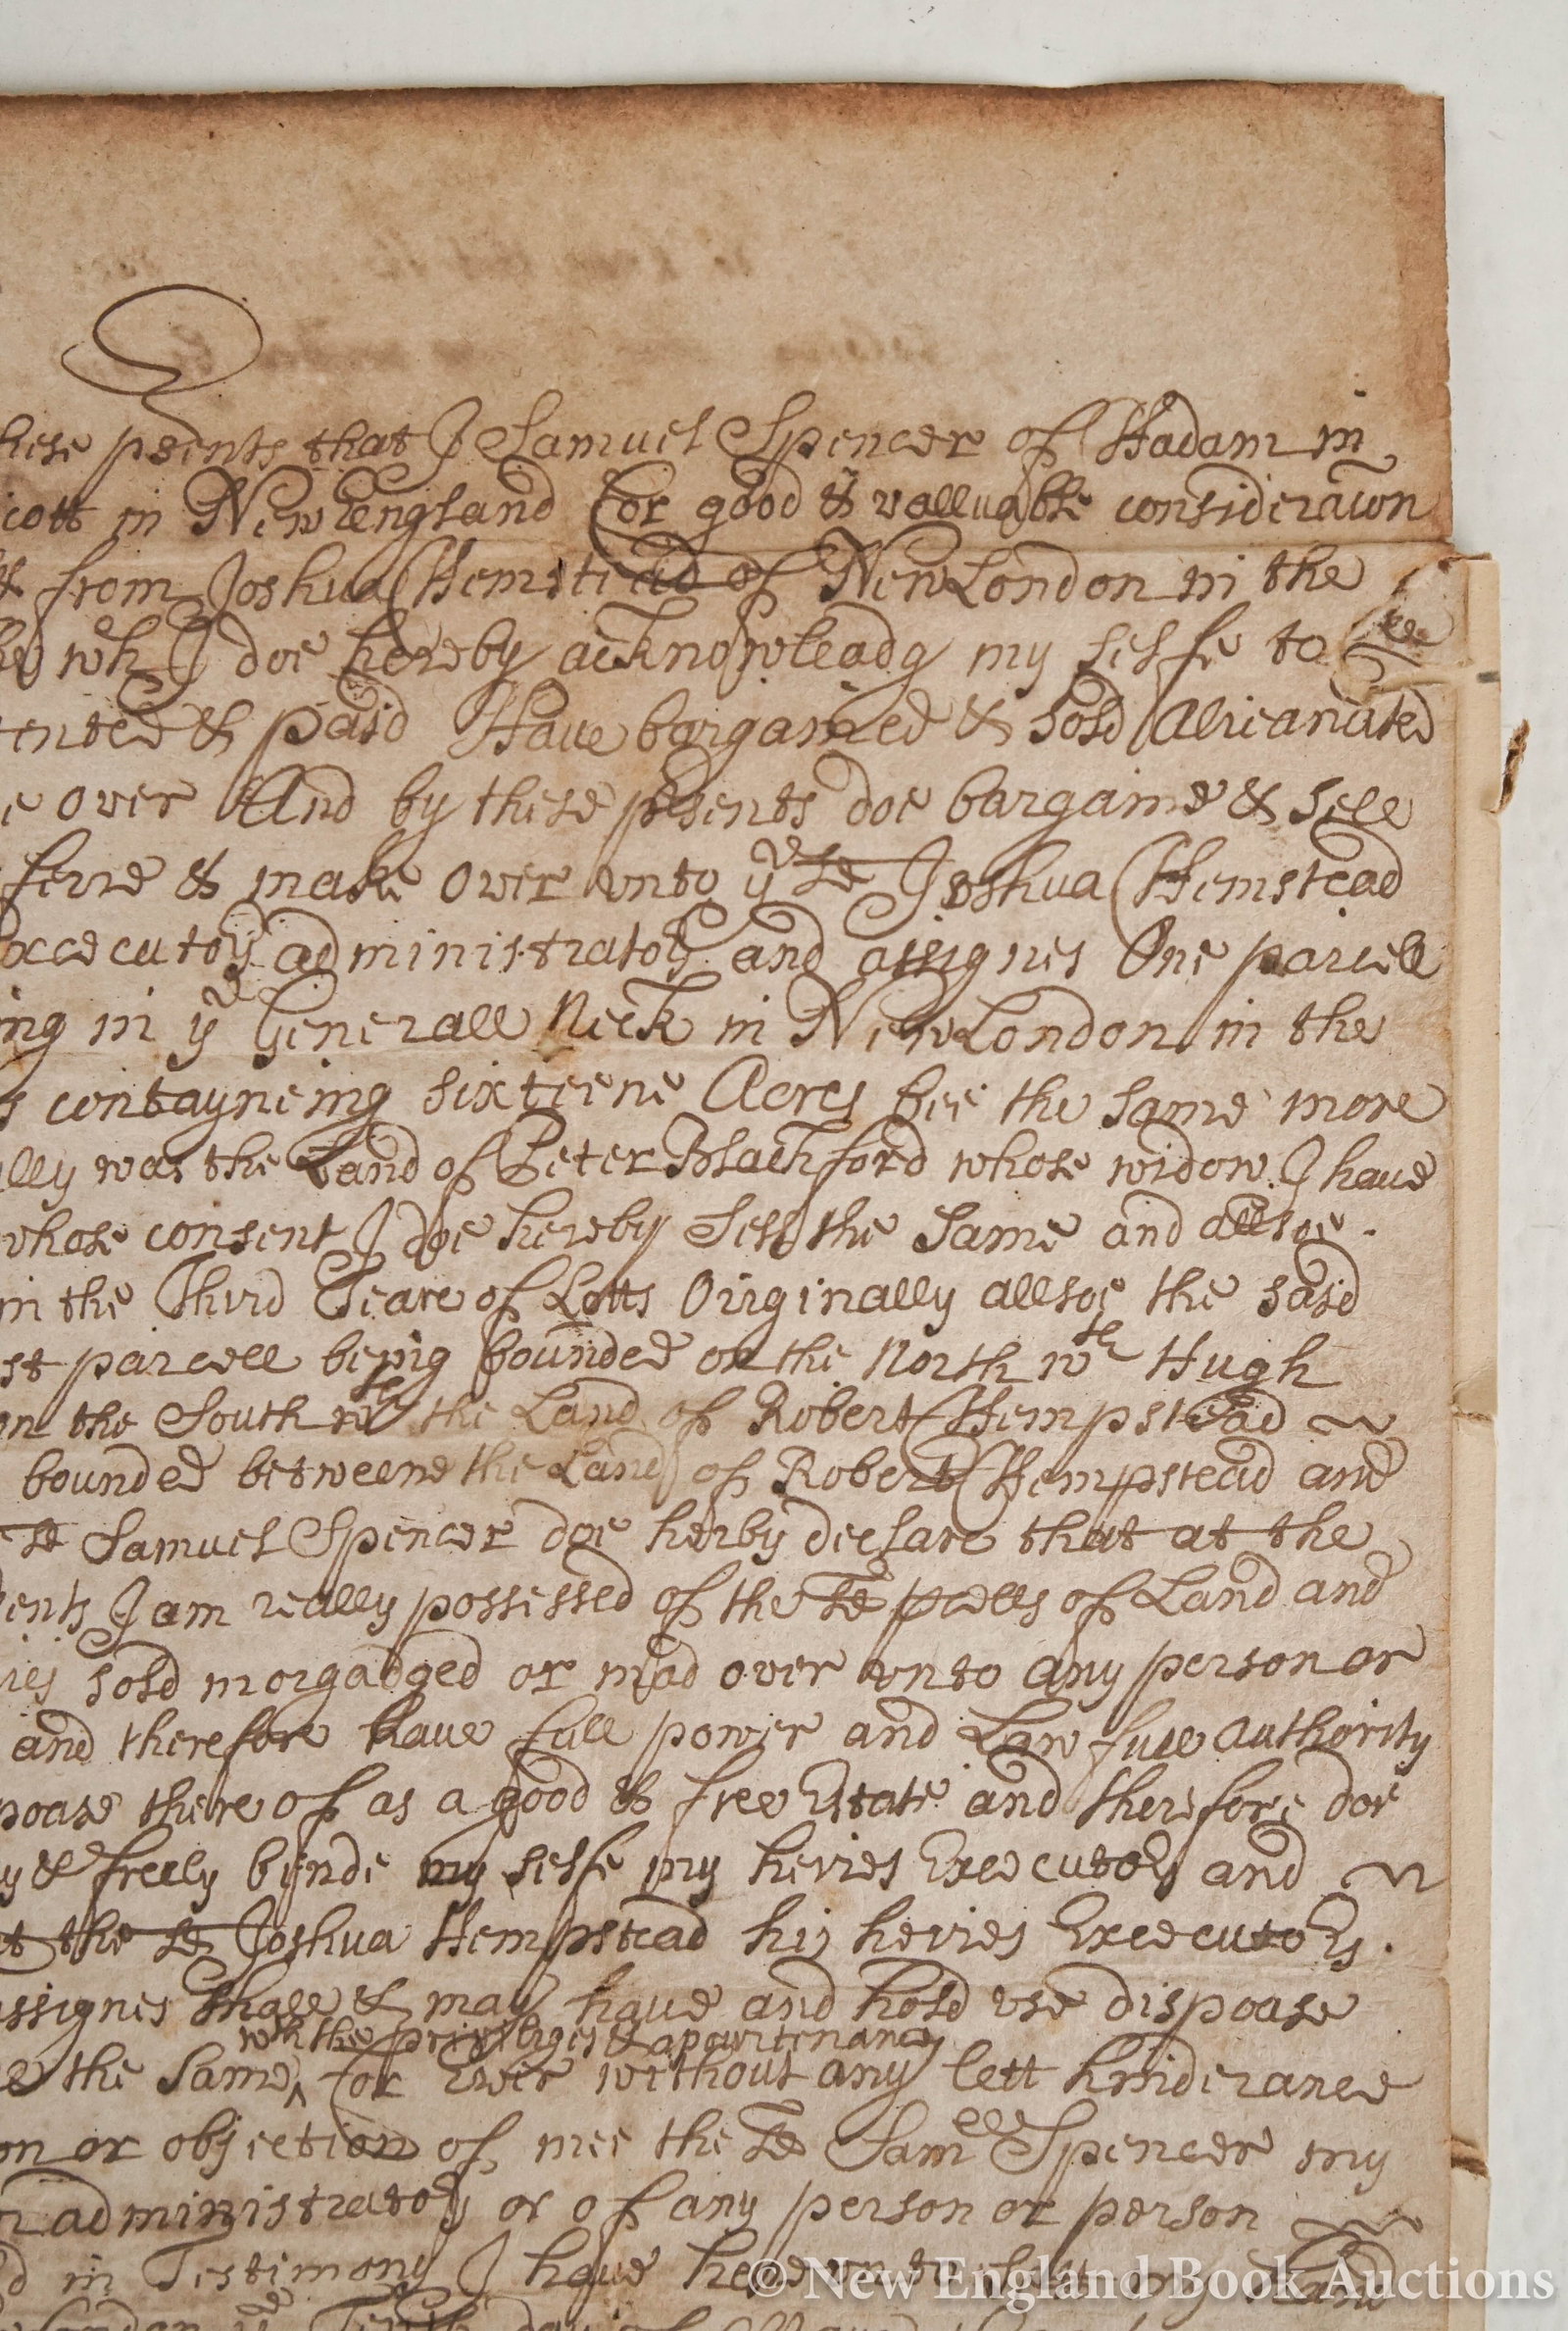 hese psents that I Samuel Spencer of Hadam in
icott in New England for good & valluable consideracion
& from Joshua Hemstead of New London in the
wch I doe hereby acknowleadg my selfe to bee
tented & paid Have bargained & sold Alieanated
e over And by these psents doe bargaine & sell
ferre & make over vnto ye sd Joshua Hemstead
xecutors administrators and assignes One parcell
ing in ye Generall Neck in New London in the
s contayneing sixteene Acres bee the same more
lly was the Land of Peter Blachford whose widow I have
whose consent I doe hereby Sell the Same and allsoe
in the Third Teare of Lotts Oirginally allsoe the said
st parcell being bounded on the North wth Hugh
on the South wth the Land of Robert Hempstead
bounded betweene the Land of Robert Hempstead and
e sd Samuel Spencer doe herby declare that at the
ents I am really possessed of the sd pcells of Land and
ies sold morgadged or mad over vnto any person or
and therefore have full power and Lawfull authority
poase there of as a good & free Estate and therefore doe
y & freely bynde my selfe my heires Executors and
t the sd Joshua Hempstead his heires Executors
ssignes shall & may have and hold vse dispoase
wth the priviliges & apeurtenances
e the Same ^ for Ever without any lett hinderance
on or objection of mee the sd Samell Spencer my
r administrators or of any person or person
d in Testimony I have herevnto sett my Hand
London ye Tenth day of
© New England Book Auctions